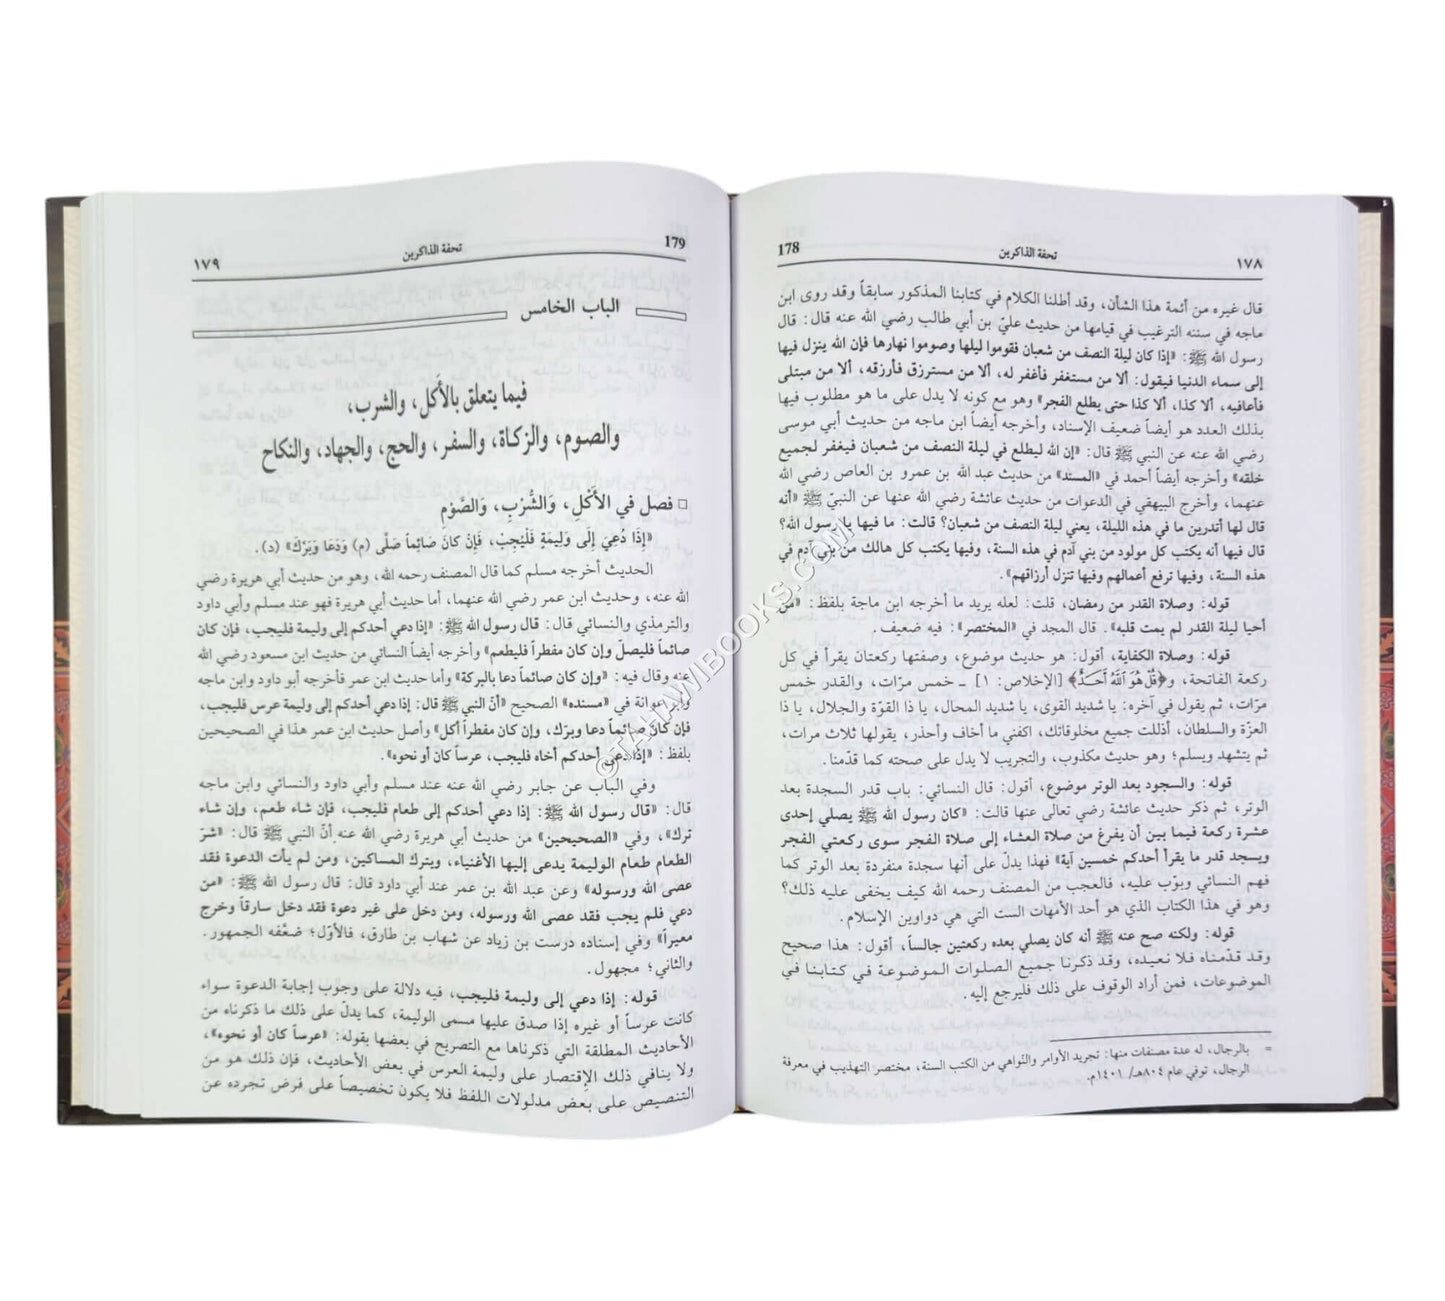 ١٧٨ تحفة الذاكرين 178
قال غيره من أئمة هذا الشأن، وقد أطلنا الكلام في كتابنا المذكور سابقاً وقد روى ابن
ماجه في سننه الترغيب في قيامها من حديث عليّ بن أبي طالب رضي الله عنه قال: قال
رسول الله ﷺ: «إذا كان ليلة النصف من شعبان فقوموا ليلها وصوموا نهارها فإن الله ينزل فيها
إلى سماء الدنيا فيقول: ألا من مستغفر فأغفر له، ألا من مسترزق فأرزقه، ألا من مبتلى
فأعافيه، ألا كذا، ألا كذا حتى يطلع الفجر» وهو مع كونه لا يدل على ما هو مطلوب فيها
بذلك العدد هو أيضاً ضعيف الإسناد، وأخرجه أيضاً ابن ماجه من حديث أبي موسى
رضي الله عنه عن النبي ﷺ قال: «إن الله ليطلع في ليلة النصف من شعبان فيغفر لجميع
خلقه» وأخرجه أيضاً أحمد في «المسند» من حديث عبد الله بن عمرو بن العاص رضي الله
عنهما، وأخرج البيهقي في الدعوات من حديث عائشة رضي الله عنها عن النبيّ ﷺ «أنه
قال لها أتدرين ما في هذه الليلة، يعني ليلة النصف من شعبان؟ قالت: ما فيها يا رسول الله؟
قال فيها أنه يكتب كل مولود من بني آدم في هذه السنة، وفيها يكتب كل هالك من بني آدم في
هذه السنة، وفيها ترفع أعمالهم وفيها تنزل أرزاقهم».
قوله: وصلاة القدر من رمضان، قلت: لعله يريد ما أخرجه ابن ماجة بلفظ: «من
أحيا ليلة القدر لم يمت قلبه». قال المجد في «المختصر»: فيه ضعيف.
قوله: وصلاة الكفاية، أقول: هو حديث موضوع، وصفتها ركعتان يقرأ في كل
ركعة الفاتحة، و﴿قُلْ هُوَ ٱللَّهُ أَحَدٌ﴾ [الإخلاص: ١] ـ خمس مرّات، والقدر خمس
مرّات، ثم يقول في آخره: يا شديد القوى، يا شديد المحال، يا ذا القوّة والجلال، يا ذا
العزّة والسلطان، أذللت جميع مخلوقاتك، اكفني ما أخاف وأحذر، يقولها ثلاث مرات،
ثم يتشهد ويسلم؛ وهو حديث مكذوب، والتجريب لا يدل على صحته كما قدّمنا.
قوله: والسجود بعد الوتر موضوع، أقول: قال النسائي: باب قدر السجدة بعد
الوتر، ثم ذكر حديث عائشة رضي تعالى عنها قالت: «كان رسول الله ﷺ يصلي إحدى
عشرة ركعة فيما بين أن يفرغ من صلاة العشاء إلى صلاة الفجر سوى ركعتي الفجر
ويسجد قدر ما يقرأ أحدكم خمسين آية» فهذا يدلّ على أنها سجدة منفردة بعد الوتر كما
فهم النسائي وبوّب عليه، فالعجب من المصنف رحمه الله كيف يخفى عليه ذلك؟
وهو في هذا الكتاب الذي هو أحد الأمهات الست التي هي دواوين الإسلام.
قوله: ولكنه صح عنه ﷺ أنه كان يصلي بعده ركعتين جالساً، أقول: هذا صحيح
وقد قدّمناه فلا نعيده، وقد ذكرنا جميع الصلوات الموضوعة في كتابنا في
الموضوعات، فمن أراد الوقوف على ذلك فليرجع إليه.
= بالرجال، له عدة مصنفات منها: تجريد الأوامر والنّواهي من الكتب السنة، مختصر التهذيب في معرفة
الرجال، توفي عام ٨٠٤هـ/ ١٤٠١م.
179 تحفة الذاكرين ١٧٩
الباب الخامس
فيما يتعلق بالأكل، والشرب،
والصوم، والزكاة، والسفر، والحج، والجهاد، والنكاح
□ فصل في الأَكْلِ، وَالشُّرْبِ، وَالصَّوْم
«إِذَا دُعِيَ إِلَى وَلِيمَةٍ فَلْيُجِبْ، فَإِنْ كانَ صَائِماً صَلَّى (م) وَدَعَا وَبَرَّكَ» (د).
الحديث أخرجه مسلم كما قال المصنف رحمه الله، وهو من حديث أبي هريرة رضي
الله عنه، وحديث ابن عمر رضي الله عنهما، أما حديث أبي هريرة فهو عند مسلم وأبي داود
والترمذي والنسائي قال: قال رسول الله ﷺ: «إذا دعي أحدكم إلى وليمة فليجب، فإن كان
صائماً فليصلّ وإن كان مفطراً فليطعم» وأخرجه أيضاً النسائي من حديث ابن مسعود رضي الله
عنه وقال فيه: «وإن كان صائماً دعا بالبركة» وأما حديث ابن عمر فأخرجه أبو داود وابن ماجه
وأبو عوانة في «مسنده» الصحيح «أنّ النبي ﷺ قال: إذا دعي أحدكم إلى وليمة عرس فليجب،
فإن كان صائماً دعا وبرّك، وإن كان مفطراً أكل» وأصل حديث ابن عمر هذا في الصحيحين
بلفظ: «إذا دعي أحدكم أخاه فليجب، عرساً كان أو نحوه».
وفي الباب عن جابر رضي الله عنه عند مسلم وأبي داود والنسائي وابن ماجه
قال: «قال رسول الله ﷺ: إذا دعي أحدكم إلى طعام فليجب، فإن شاء طعم، وإن شاء
ترك»، وفي «الصحيحين» من حديث أبي هريرة رضي الله عنه أنّ النبي ﷺ قال: «شرّ
الطعام طعام الوليمة يدعى إليها الأغنياء، ويترك المساكين، ومن لم يأت الدعوة فقد
عصى الله ورسوله» وعن عبد الله بن عمر عند أبي داود قال: قال رسول الله ﷺ: «من
دعي فلم يجب فقد عصى الله ورسوله، ومن دخل على غير دعوة فقد دخل سارقاً وخرج
معيراً» وفي إسناده درست بن زياد عن شهاب بن طارق، فالأوّل؛ ضعّفه الجمهور.
والثاني؛ مجهول.
قوله: إذا دعي إلى وليمة فليجب، فيه دلالة على وجوب إجابة الدعوة سواء
كانت عرساً أو غيره إذا صدق عليها مسمى الوليمة، كما يدلّ على ذلك ما ذكرناه من
الأحاديث المطلقة التي ذكرناها مع التصريح في بعضها بقوله: «عرساً كان أو نحوه»،
ولا ينافي ذلك الإقتصار على وليمة العرس في بعض الأحاديث، فإن ذلك هو من
التنصيص على بعض مدلولات اللفظ فلا يكون تخصيصاً على فرض تجرده عن
©TAHAWIBOOKS.COM